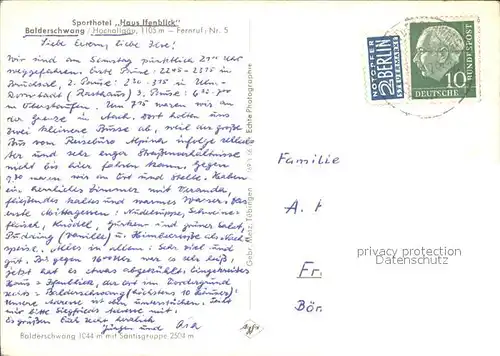 Sporthotel „Haus Ifenblick"
Balderschwang / Hochallgäu, 1105 m – Fernruf: Nr. 5
Liebe Eltern, liebe
Wir sind am Samstag pünktlich 21⁰⁰ Uhr
weggefahren. Erste Pause: 22⁴⁵ – 23¹⁵ in
Bruchsal, 2. Pause: 2³⁰ – 3¹⁵ in Ulm-
Dornstadt (Rasthaus) 3. Pause:
in Oberstaufen. Um 7⁴⁵ waren wir an
der Grenze in Aach. Dort holten uns
zwei kleinere Busse ab, weil der große
Bus vom Reisebüro Alpina infolge
und sehr enger Straßenverhältnisse
nicht bis hier fahren kann. Gegen
waren wir an Ort und Stelle. Haben
ein herrliches Zimmer mit Veranda,
fließendes kaltes und warmes Wasser. Das
erste Mittagessen: Nudelsuppe, Schweine-
fleisch, Knödel, Gurken- und grüner Salat,
Pudding (Vanille) u. Himbeersoße als Nach-
speise. Alles in allem: Sehr viel und
gut. Bis gegen 16⁰⁰ Uhr war es sehr heiß,
jetzt hat es etwas abgekühlt. Eingekreistes
Haus = Ifenblick, der Ort im Vordergrund
rechts = Balderschwang (höchstens 10 Häuser).
Unsere Adresse ist dem
bitte mit.
Es grüßen Euch recht herzlich
Jürgen und
Balderschwang 1044 m mit Säntisgruppe 2504 m
Gebr. Metz, Tübingen
Echte Photographie
NOTOPFER
2 BERLIN
STEUERMARKE
10
DEUTSCHE
BUNDESPOST
Familie
A.
Fr.
Bör.
privacy protection
Datenschutz